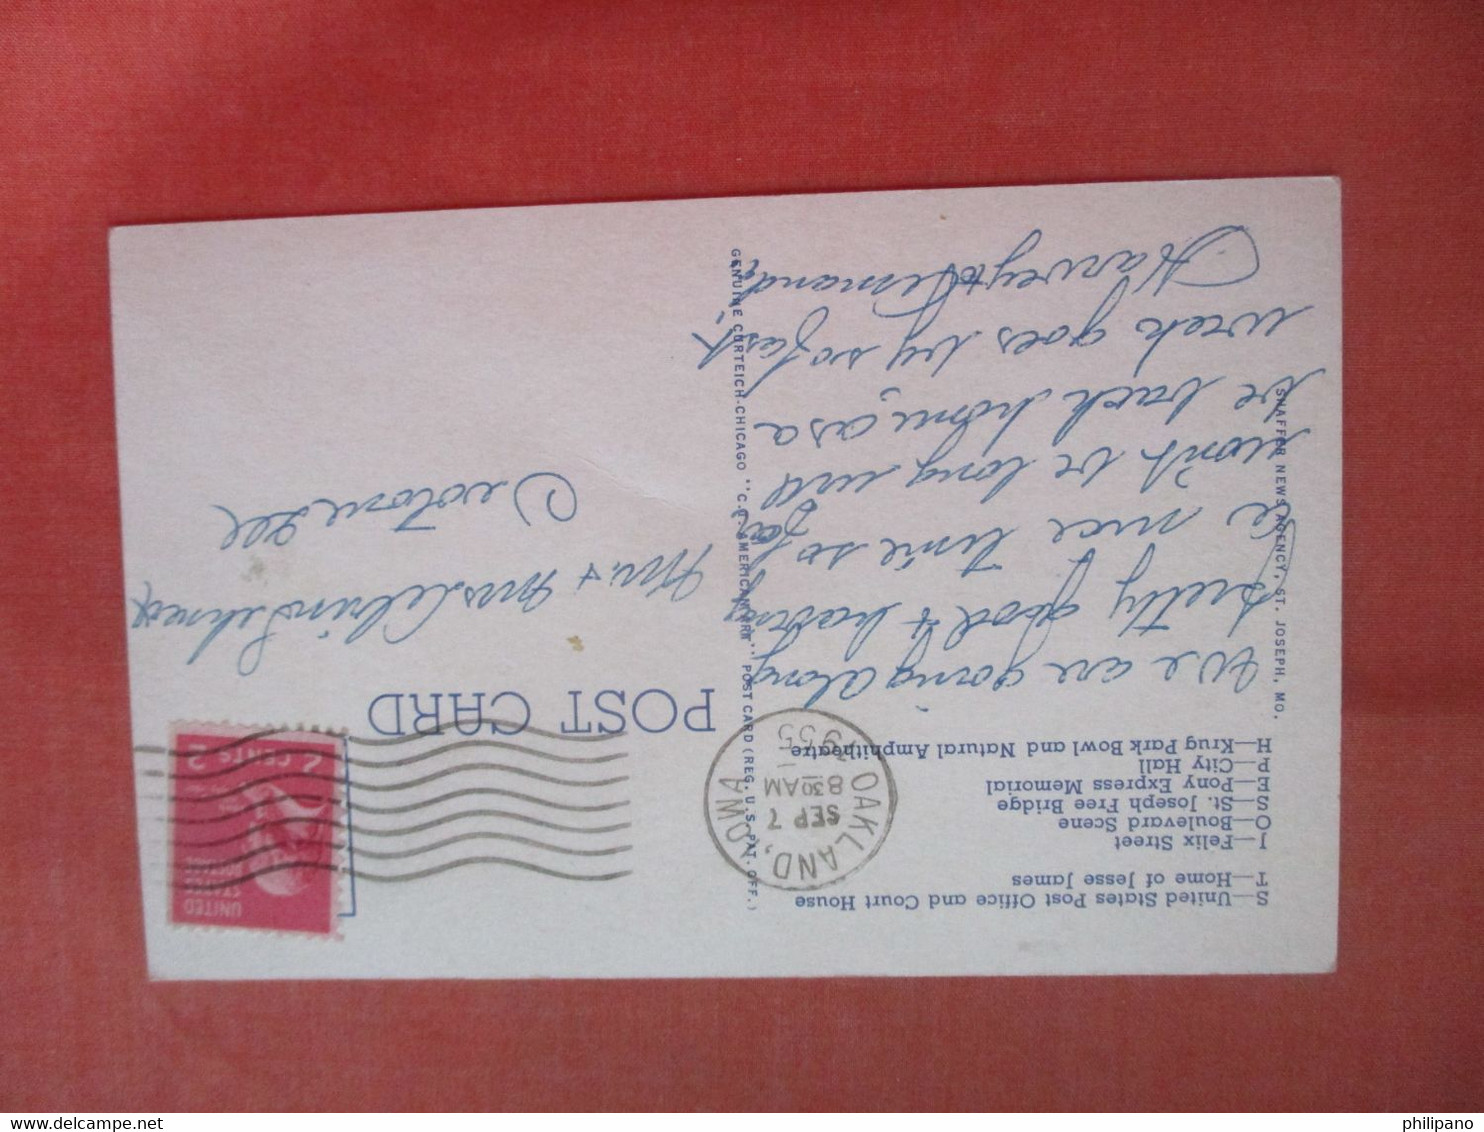 S—United States Post Office and Court House
T—Home of Jesse James
J—Felix Street
O—Boulevard Scene
S—St. Joseph Free Bridge
E—Pony Express Memorial
P—City Hall
H—Krug Park Bowl and Natural Amphitheatre
We are going along
pretty good & having
a nice time so far
won't be long we'll
be back home, as a
week goes by so fast.
Harvey &
SHAFFER NEWS AGENCY, ST. JOSEPH, MO.
GENUINE CURTEICH-CHICAGO "C.T. AMERICAN ART" POST CARD (REG. U.S. PAT. OFF.)
OAKLAND, IOWA
SEP 7
8 30 AM
1955
POST CARD
UNITED
STATES
POSTAGE
2 CENTS 2
Mr. & Mrs
Ill
philipano